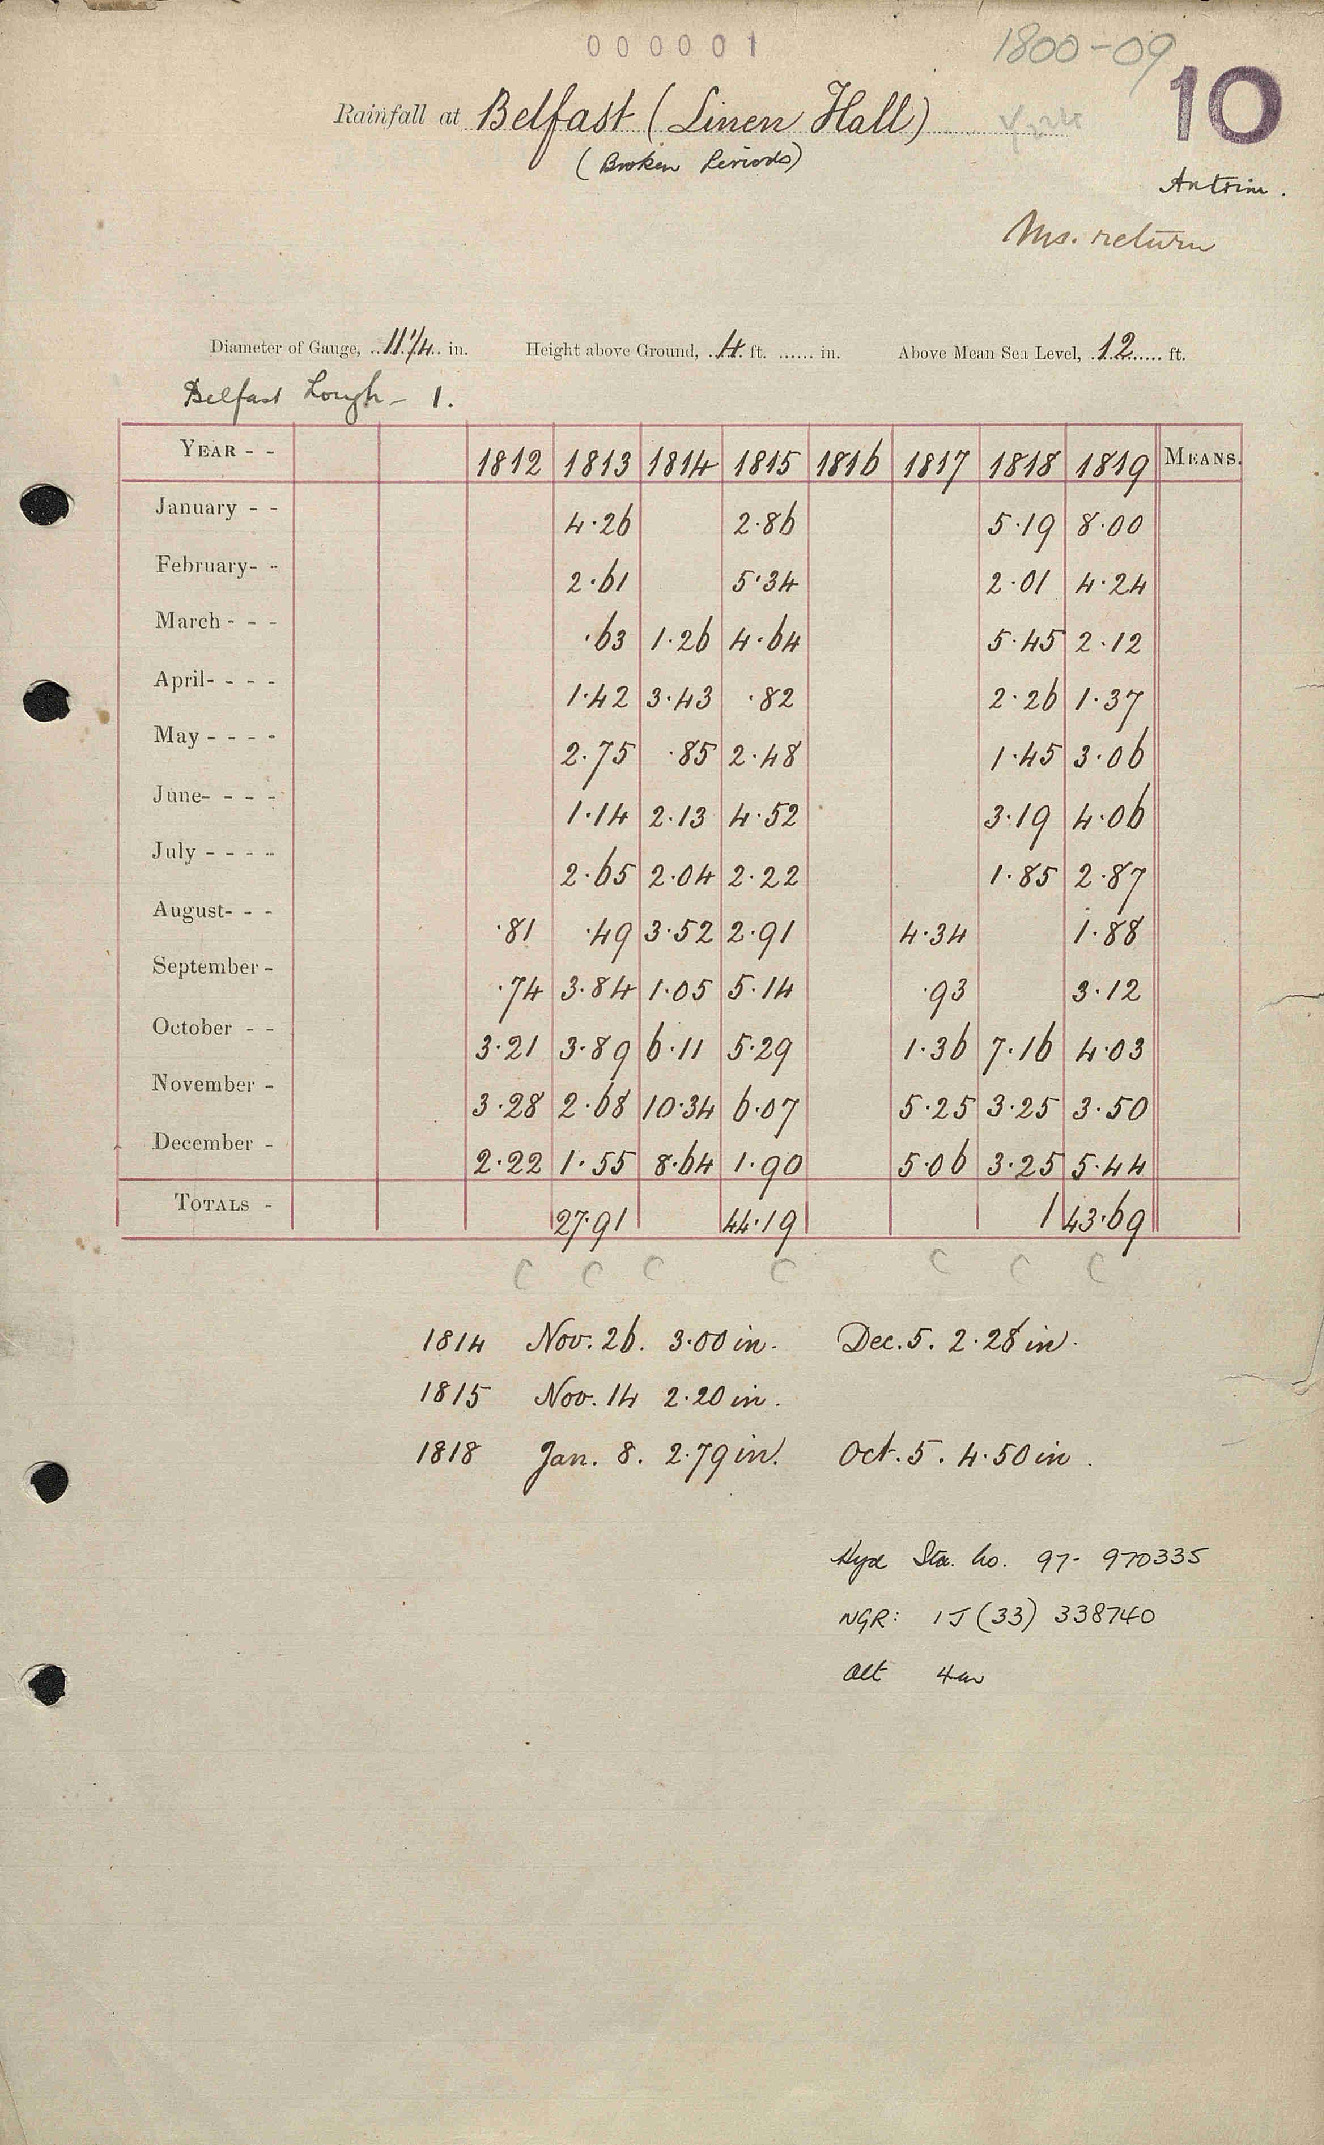 000001
1800-09
10
Rainfall at Belfast (Linen Hall)
(Broken Periods)
Antrim.
Ms. return
Diameter of Gauge, 11 1/4 in. Height above Ground, 4 ft. ...... in. Above Mean Sea Level, 12 ft.
Belfast Lough - 1.
YEAR - - 1812 1813 1814 1815 1816 1817 1818 1819 MEANS.
January - - 4.26 2.86 5.19 8.00
February - - 2.61 5.34 2.01 4.24
March - - - .63 1.26 4.64 5.45 2.12
April - - - - 1.42 3.43 .82 2.26 1.37
May - - - - 2.75 .85 2.48 1.45 3.06
June - - - - 1.14 2.13 4.52 3.19 4.06
July - - - - 2.65 2.04 2.22 1.85 2.87
August - - - .81 .49 3.52 2.91 4.34 1.88
September - .74 3.84 1.05 5.14 .93 3.12
October - - 3.21 3.89 6.11 5.29 1.36 7.16 4.03
November - 3.28 2.68 10.34 6.07 5.25 3.25 3.50
December - 2.22 1.55 8.64 1.90 5.06 3.25 5.44
TOTALS - 27.91 44.19 43.69
C C C C C C C
1814 Nov. 26. 3.00 in. Dec. 5. 2.28 in.
1815 Nov. 14 2.20 in.
1818 Jan. 8. 2.79 in. Oct. 5. 4.50 in.
Sta. No. 97- 970335
NGR: IJ (33) 338740
Alt 4m